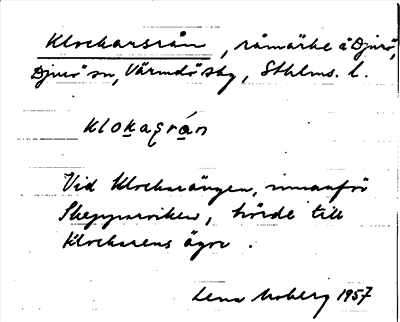 Klockarsrån, råmärke å Djurö,
Djurö sn, Värmdö sky, Sthlms. l.
klokagrán
Vid Klockarängen, innanför
Skepparviken, hörde till
Klockarens ägor.
Lena Moberg 1957